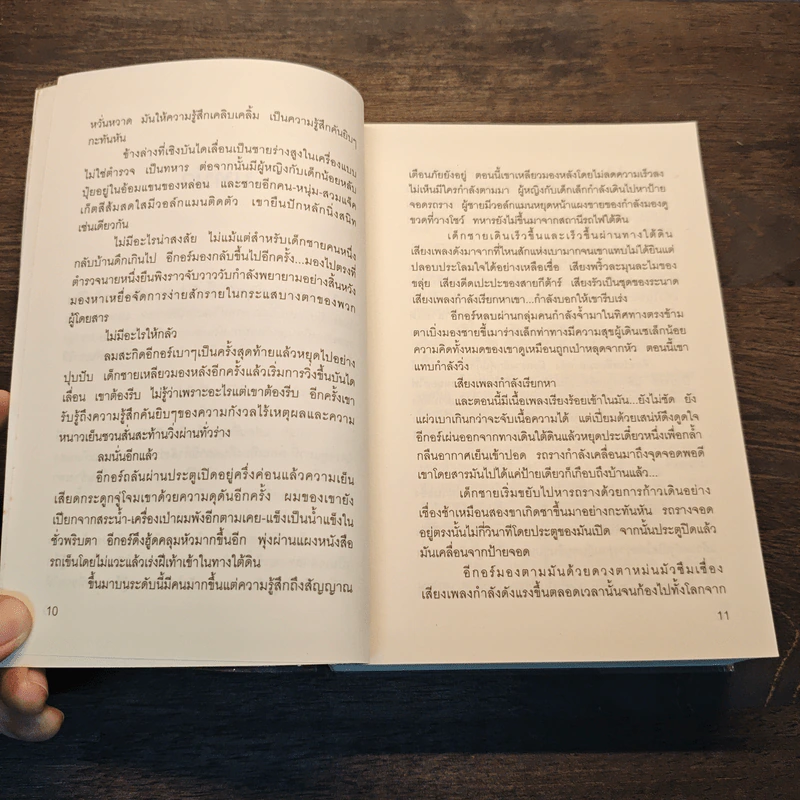 หวั่นหวาด มันให้ความรู้สึกเคลิบเคลิ้ม เป็นความรู้สึกคันยิบๆ
กะทันหัน
ข้างล่างที่เชิงบันไดเลื่อนเป็นชายร่างสูงในเครื่องแบบ
ไม่ใช่ตำรวจ เป็นทหาร ต่อจากนั้นมีผู้หญิงกับเด็กน้อยหลับ
ปุ๋ยอยู่ในอ้อมแขนของหล่อน และชายอีกคน-หนุ่ม-สวมแจ็ค
เก็ตสีส้มสดใสมีวอล์กแมนติดตัว เขายืนปักหลักนิ่งสนิท
เช่นเดียวกัน
ไม่มีอะไรน่าสงสัย ไม่แม้แต่สำหรับเด็กชายคนหนึ่ง
กลับบ้านดึกเกินไป อีกอร์มองกลับขึ้นไปอีกครั้ง...มองไปตรงที่
ตำรวจนายหนึ่งยืนพิงราวจับวาววับกำลังพยายามอย่างสิ้นหวัง
มองหาเหยื่อจัดการง่ายสักรายในกระแสบางตาของพวก
ผู้โดยสาร
ไม่มีอะไรให้กลัว
ลมสะกิดอีกอร์เบาๆเป็นครั้งสุดท้ายแล้วหยุดไปอย่าง
ปุบปับ เด็กชายเหลียวมองหลังอีกครั้งแล้วเริ่มการวิ่งขึ้นบันได
เลื่อน เขาต้องรีบ ไม่รู้ว่าเพราะอะไรแต่เขาต้องรีบ อีกครั้งเขา
รับรู้ถึงความรู้สึกคันยิบๆของความกังวลไร้เหตุผลและความ
หนาวเย็นชวนสั่นสะท้านวิ่งผ่านทั่วร่าง
ลมนั่นอีกแล้ว
อีกอร์ถลันผ่านประตูเปิดอยู่ครึ่งค่อนแล้วความเย็น
เสียดกระดูกจู่โจมเขาด้วยความดุดันอีกครั้ง ผมของเขายัง
เปียกจากสระน้ำ-เครื่องเป่าผมพังอีกตามเคย-แข็งเป็นน้ำแข็งใน
ชั่วพริบตา อีกอร์ดึงฮู้ดคลุมหัวมากขึ้นอีก พุ่งผ่านแผงหนังสือ
รถเข็นโดยไม่แวะแล้วเร่งฝีเท้าเข้าในทางใต้ดิน
ขึ้นมาบนระดับนี้มีคนมากขึ้นแต่ความรู้สึกถึงสัญญาณ
10
เตือนภัยยังอยู่ ตอนนี้เขาเหลียวมองหลังโดยไม่ลดความเร็วลง
ไม่เห็นมีใครกำลังตามมา ผู้หญิงกับเด็กเล็กกำลังเดินไปหาป้าย
จอดรถราง ผู้ชายมีวอล์กแมนหยุดหน้าแผงขายของกำลังมองดู
ขวดที่วางโชว์ ทหารยังไม่ขึ้นมาจากสถานีรถไฟใต้ดิน
เด็กชายเดินเร็วขึ้นและเร็วขึ้นผ่านทางใต้ดิน
เสียงเพลงดังมาจากที่ไหนสักแห่งเบามากจนเขาแทบไม่ได้ยินแต่
ปลอบประโลมใจได้อย่างเหลือเชื่อ เสียงพริ้วละมุนละไมของ
ขลุ่ย เสียงดีดเปะปะของสายกีต้าร์ เสียงรัวเป็นชุดของระนาด
เสียงเพลงกำลังเรียกหาเขา...กำลังบอกให้เขารีบเร่ง
อีกอร์หลบผ่านกลุ่มคนกำลังจ้ำมาในทิศทางตรงข้าม
ตาเบิ่งมองชายขี้เมาร่างเล็กท่าทางมีความสุขผู้เดินเซเล็กน้อย
ความคิดทั้งหมดของเขาดูเหมือนถูกเป่าหลุดจากหัว ตอนนี้เขา
แทบกำลังวิ่ง
เสียงเพลงกำลังเรียกหา
และตอนนี้มีเนื้อเพลงเรียงร้อยเข้าในมัน...ยังไม่ชัด ยัง
แผ่วเบาเกินกว่าจะจับเนื้อความได้ แต่เปี่ยมด้วยเสน่ห์ดึงดูดใจ
อีกอร์เผ่นออกจากทางเดินใต้ดินแล้วหยุดประเดี๋ยวหนึ่งเพื่อกล้ำ
กลืนอากาศเย็นเข้าปอด รถรางกำลังเคลื่อนมาถึงจุดจอดพอดี
เขาโดยสารมันไปได้แค่ป้ายเดียวก็เกือบถึงบ้านแล้ว...
เด็กชายเริ่มขยับไปหารถรางด้วยการก้าวเดินอย่าง
เชื่องช้าเหมือนสองขาเกิดชาขึ้นมาอย่างกะทันหัน รถรางจอด
อยู่ตรงนั้นไม่กี่วินาทีโดยประตูของมันเปิด จากนั้นประตูปิดแล้ว
มันเคลื่อนจากป้ายจอด
อีกอร์มองตามมันด้วยดวงตาหม่นมัวซึมเชื่อง
เสียงเพลงกำลังดังแรงขึ้นตลอดเวลานั้นจนก้องไปทั้งโลกจาก
11